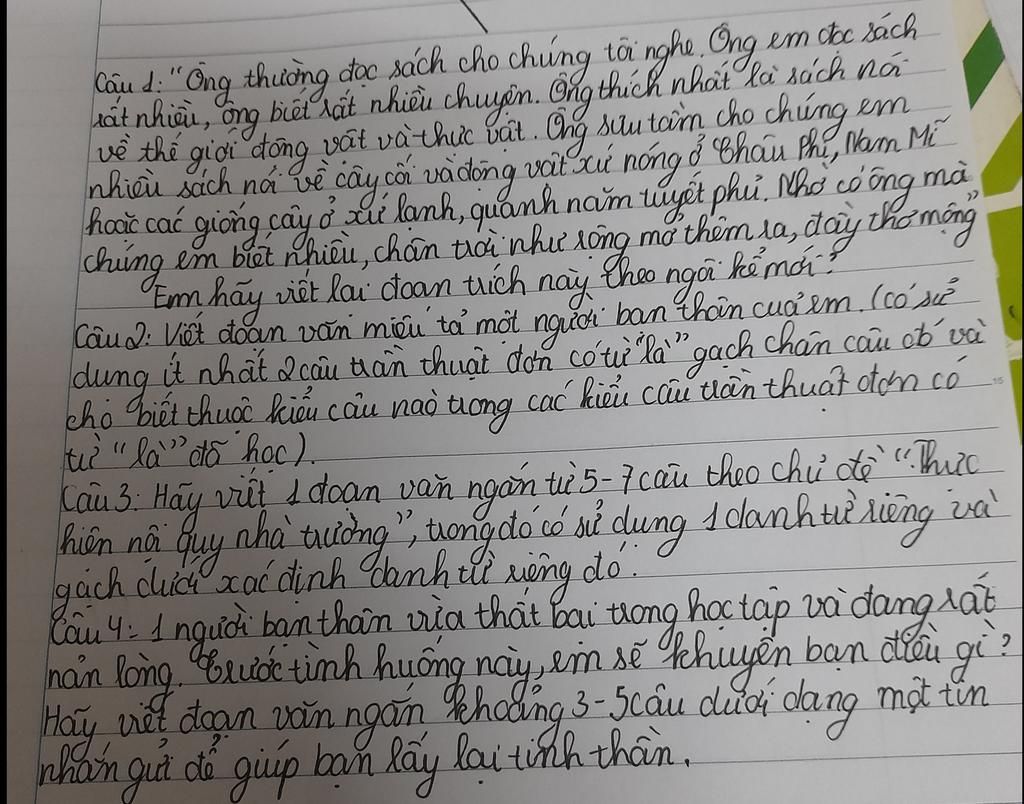 Câu 1: "Ông thường đọc sách cho chúng tôi nghe. Ông em đọc sách
rất nhiều, ông biết rất nhiều chuyện. Ông thích nhất là sách nói
về thế giới động vật và thực vật. Ông sưu tầm cho chúng em
nhiều sách nói về cây cối và động vật xứ nóng ở Châu Phi, Nam Mĩ
hoặc các giống cây ở xứ lạnh, quanh năm tuyết phủ. Nhờ có ông mà
chúng em biết nhiều, chân trời như rộng mở thêm ra, đầy thơ mộng"
Em hãy viết lại đoạn trích này theo ngôi kể mới?
Câu 2: Viết đoạn văn miêu tả một người bạn thân của em. (có sử
dụng ít nhất 2 câu trần thuật đơn có từ "là" gạch chân câu đó và
cho biết thuộc kiểu câu nào trong các kiểu câu trần thuật đơn có
từ "là" đã học).
Câu 3: Hãy viết 1 đoạn văn ngắn từ 5-7 câu theo chủ đề "Thực
hiện nội quy nhà trường", trong đó có sử dụng 1 danh từ riêng và
gạch dưới xác định danh từ riêng đó.
Câu 4: 1 người bạn thân vừa thất bại trong học tập và đang rất
nản lòng. Trước tình huống này, em sẽ khuyên bạn điều gì?
Hãy viết đoạn văn ngắn khoảng 3-5 câu dưới dạng một tin
nhắn gửi để giúp bạn lấy lại tinh thần.